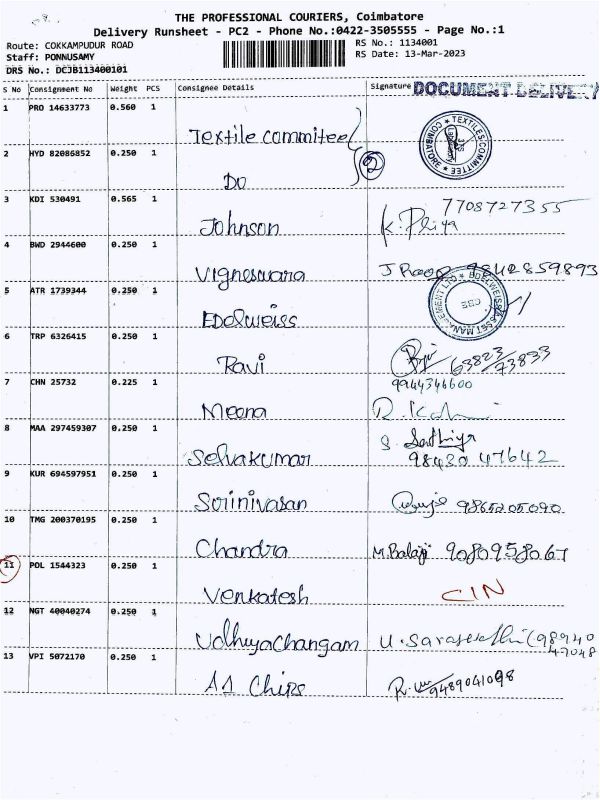 THE PROFESSIONAL COURIERS, Coimbatore
Delivery Runsheet - PC2 - Phone No.:0422-3505555 - Page No.:1
Route: COKKAMPUDUR ROAD
Staff: PONNUSAMY
DRS No.: DCJB113400101
RS No.: 1134001
RS Date: 13-Mar-2023
S No Consignment No Weight PCS Consignee Details Signature DOCUMENT DELIVE
1 PRO 14633773 0.560 1 Textile commitee TEXTILES COMMITTEE COIMBATORE
2 HYD 82086852 0.250 1 Do 2
3 KDI 530491 0.565 1 Johnson K. Priya 7708727355
4 BWD 2944600 0.250 1 Vigneswara 9842859893
5 ATR 1739344 0.250 1 Edelweiss
6 TRP 6326415 0.250 1 Ravi 63823 73833
7 CHN 25732 0.225 1 Meena 9944346600
8 MAA 297459307 0.250 1 Selvakumar S. Sathiya 98430 47642
9 KUR 694597951 0.250 1 Sorinivasan 9865205090
10 TMG 200370195 0.250 1 Chandra M. Balaji 9080958067
11 POL 1544323 0.250 1 Venkatesh CIN
12 NGT 40040274 0.250 1 Udhyachangam (98940 47048
13 VPI 5072170 0.250 1 A1 Chips 9489041098